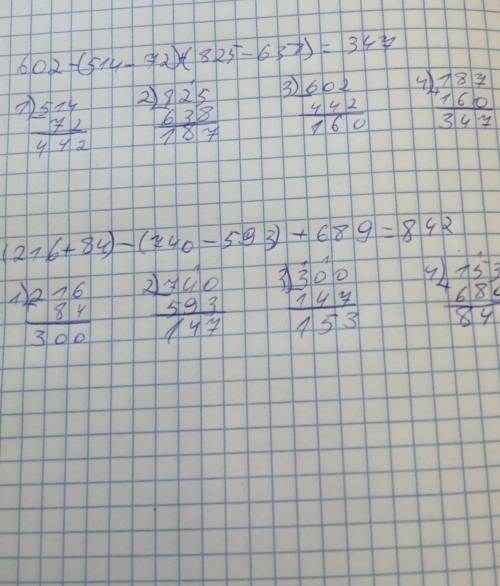 602-(514-72)+(825-638)= 347
1) 514 2) 825 3) 602 4) 187
72 638 442 160
442 187 160 347
(216+84)-(740-593)+689=842
1) 216 2) 740 3) 300 4) 153
84 593 147 68
300 147 153 84